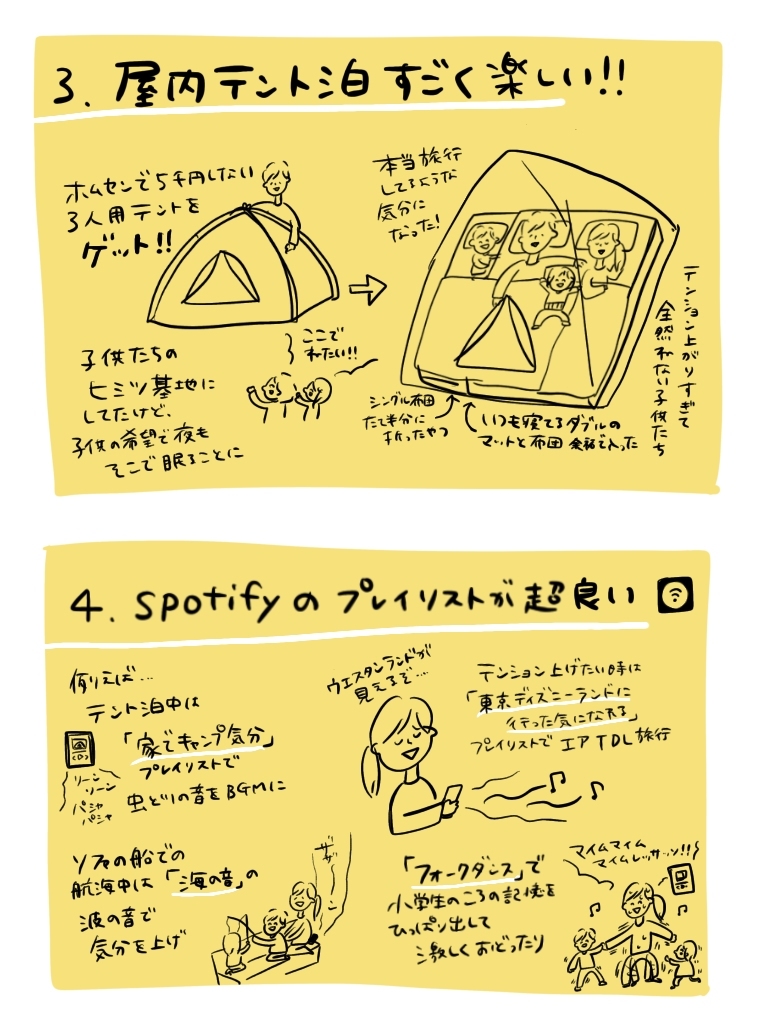 3. 屋内テント泊 すごく楽しい!!
ホムセンで5千円しない
3人用テントを
ゲット!!
子供たちの
ヒミツ基地に
してたけど、
子供の希望で夜も
そこで眠ることに
ここで
ねたい!!
本当旅行
してるような
気分に
なった!
テンション上がりすぎて
全然ねない子供たち
シングル布団
たて半分に
折ったやつ
いつも寝てるダブルの
マットと布団 余裕で入った
4. spotifyのプレイリストが超良い
例えば…
テント泊中は
「家でキャンプ気分」
プレイリストで
虫とりの音をBGMに
リーン
リーン
パシャ
パシャ
ウエスタンランドが
見えるぞ…
テンション上げたい時は
「東京ディズニーランドに
行った気になれる」
プレイリストで エアTDL旅行
ソファの船での
航海中は「海の音」の
波の音で
気分を上げ
ザザーン
「フォークダンス」で
小学生のころの記憶を
ひっぱり出して
激しくおどったり
マイムマイム
マイムレッサッソ!!